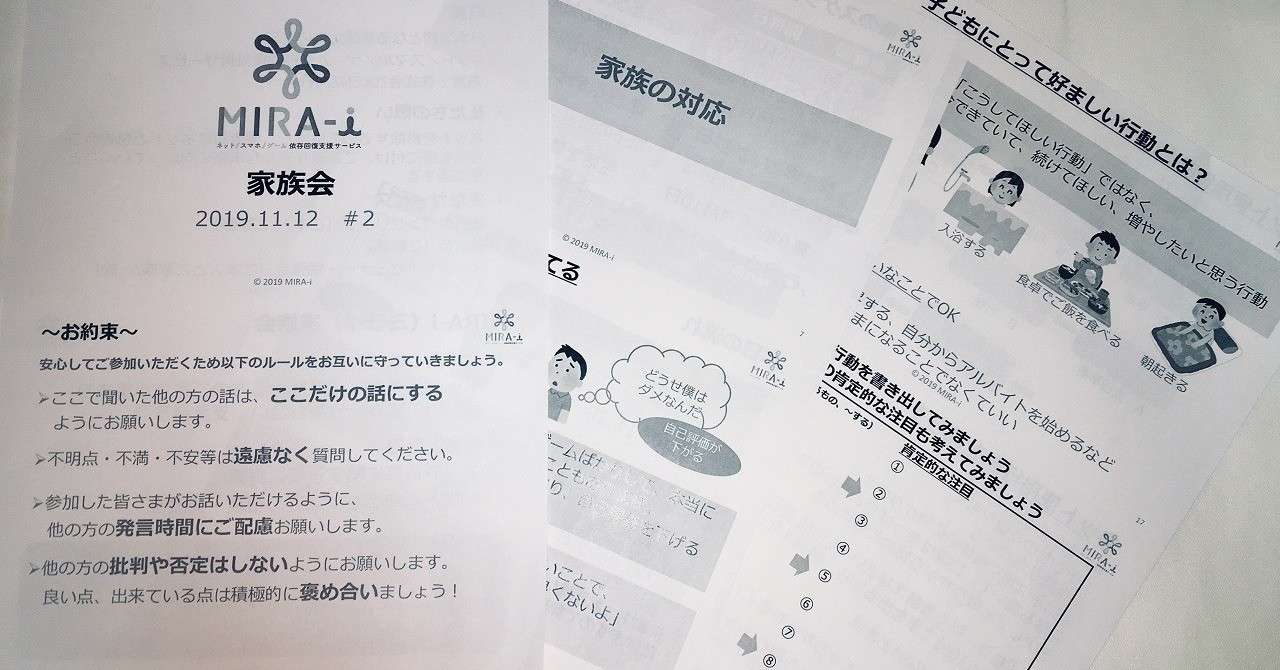 MIRA-i
ネット/スマホ/ゲーム 依存回復支援サービス
家族会
2019.11.12　＃2
© 2019 MIRA-i
～お約束～
MIRA-i
安心してご参加いただくため以下のルールをお互いに守っていきましょう。
➢ここで聞いた他の方の話は、ここだけの話にする
ようにお願いします。
➢不明点・不満・不安等は遠慮なく質問してください。
➢参加した皆さまがお話いただけるように、
他の方の発言時間にご配慮お願いします。
➢他の方の批判や否定はしないようにお願いします。
良い点、出来ている点は積極的に褒め合いましょう！
MIRA-i
家族の対応
© 2019 MIRA-i
7
てる
MIRA-i
どうせ僕は
ダメなんだ
自己評価が
下がる
本当に
下げる
いことで、
くないよ」
子どもにとって好ましい行動とは？
「こうしてほしい行動」ではなく、
できていて、続けてほしい、増やしたいと思う行動
入浴する
食卓でご飯を食べる
朝起きる
なことでOK
する、自分からアルバイトを始めるなど
まになることでなくていい
© 2019 MIRA-i
17
行動を書き出してみましょう
の肯定的な注目も考えてみましょう
もの、～する）
肯定的な注目
MIRA-i
①
②
③
④
⑤
⑥
⑦
⑧